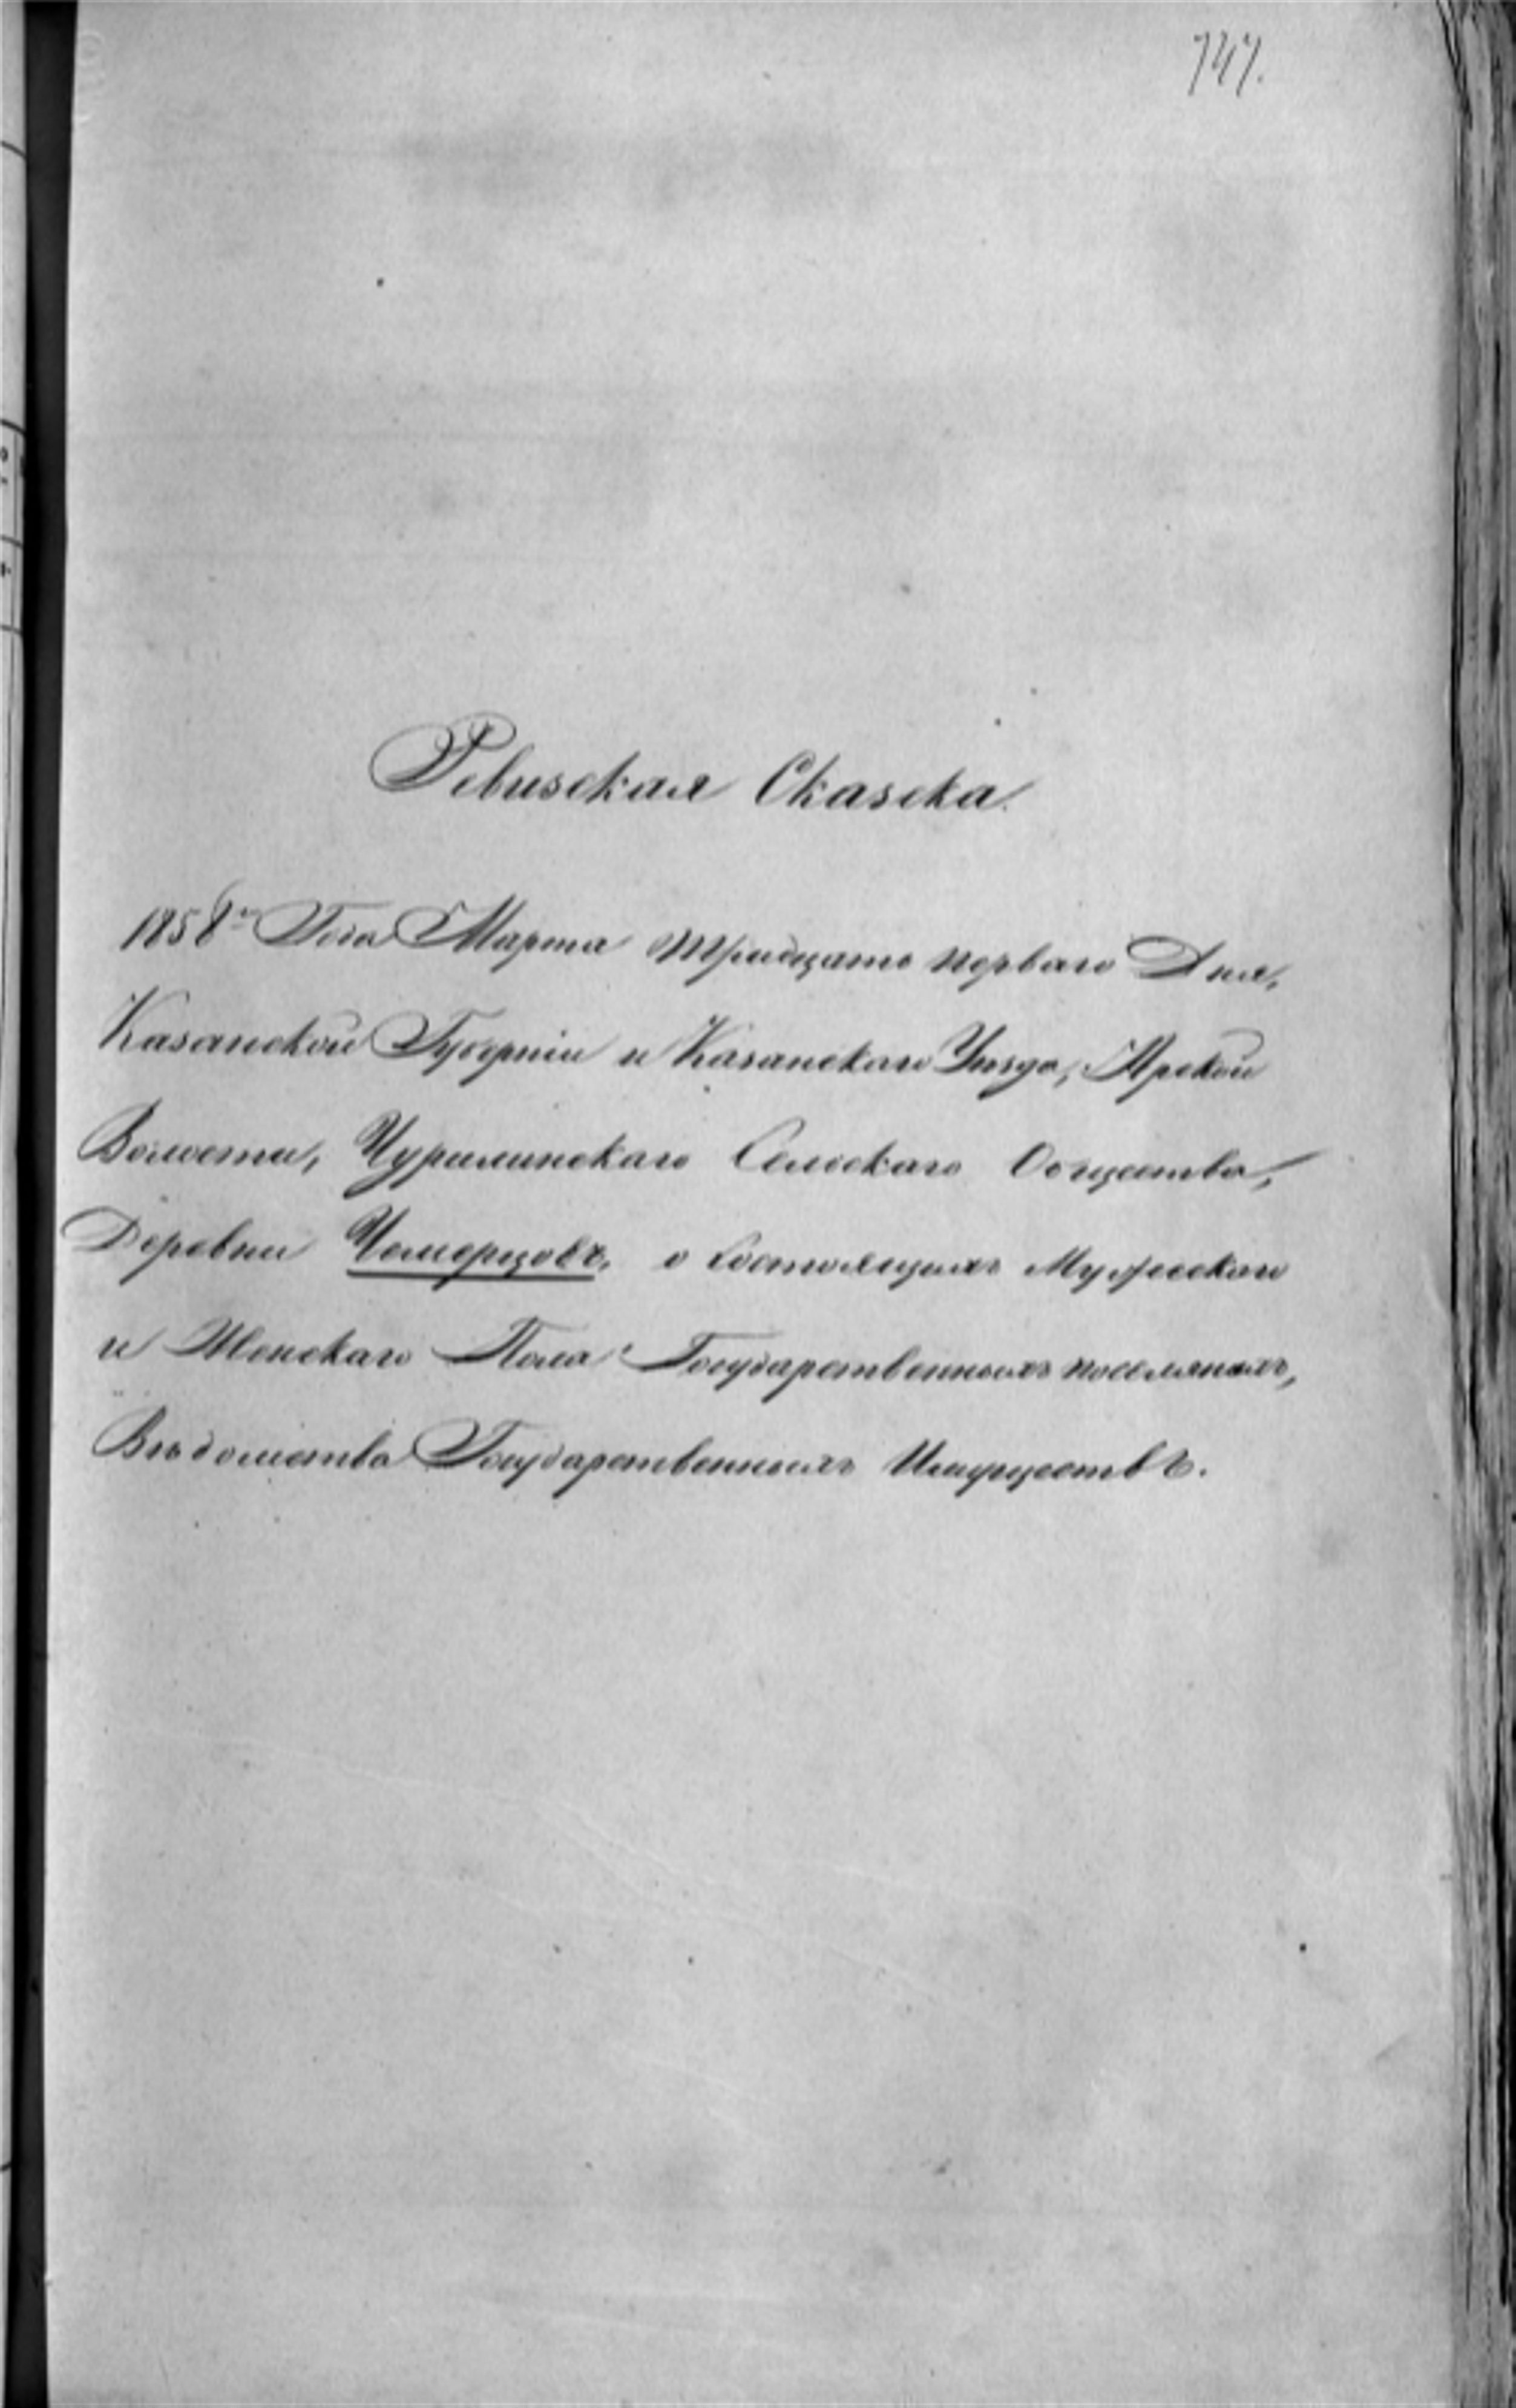 747.
Ревизская Сказка.
1858го Года Марта тридцать перваго Дня,
Казанской Губерніи и Казанскаго Уѣзда, Арской
Волости, Чурилинскаго Сельскаго Общества,
Деревни Чемерцовъ, о состоящихъ Мужескаго
и Женскаго Пола Государственныхъ поселянахъ,
Вѣдомства Государственныхъ Имуществъ.